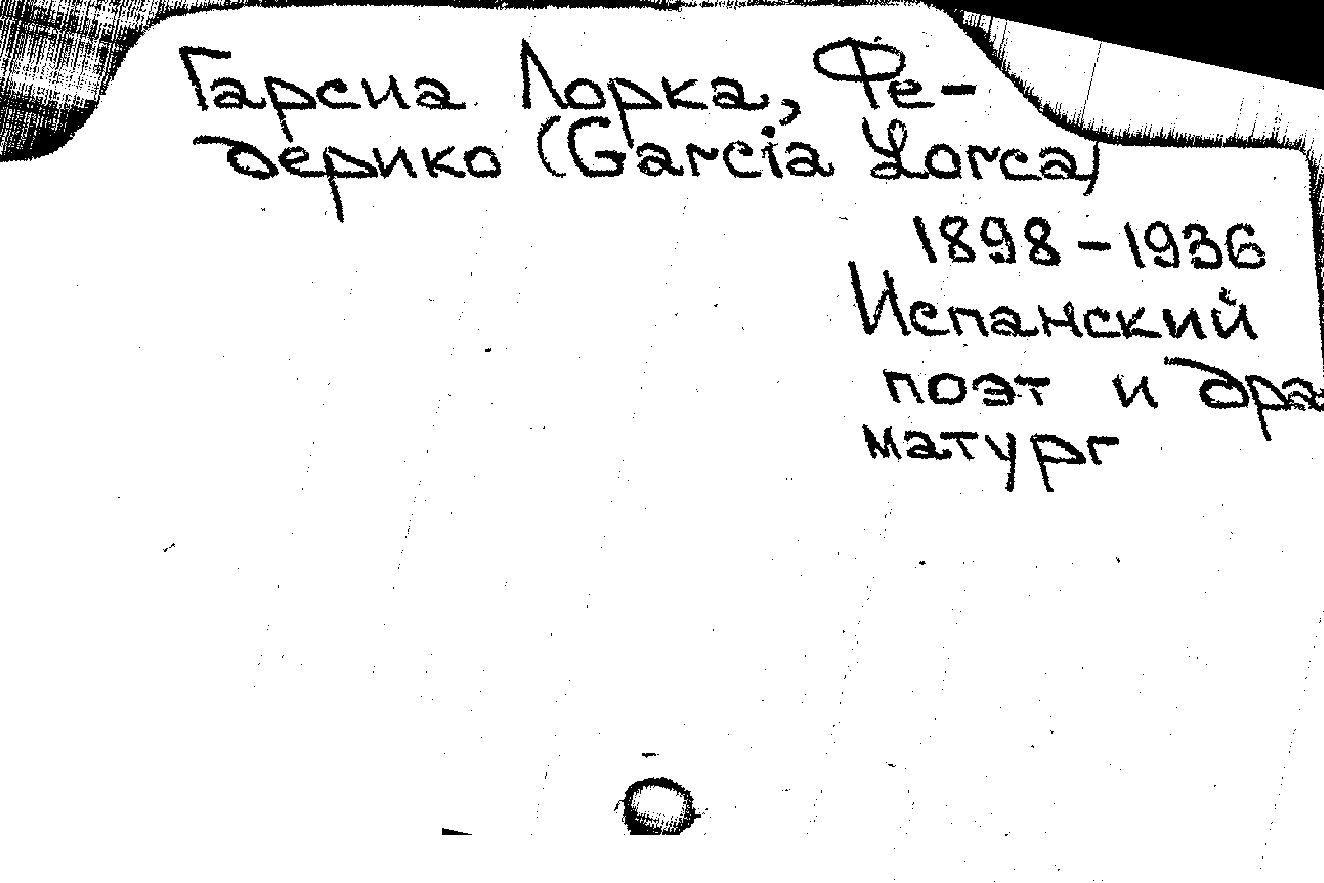 Гарсиа Лорка, Фе-
дерико (García Lorca)
1898-1936
Испанский
поэт и дра-
матург